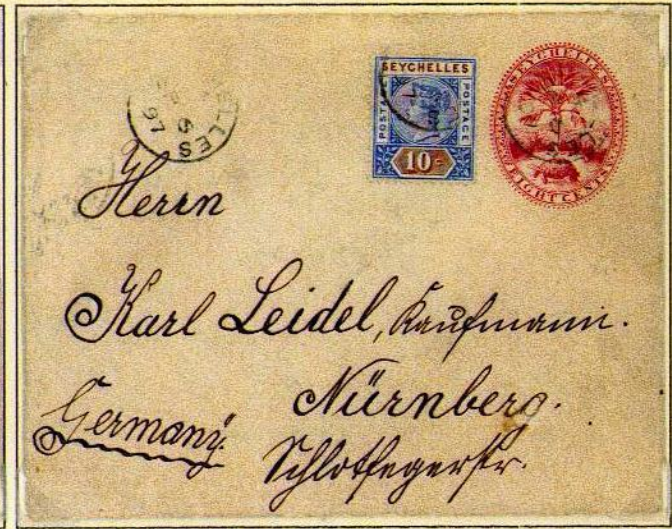 SEYCHELLES
POSTAGE
POSTAGE
10 c
SEYCHELLES
EIGHT CENTS
ELLES
97
Herrn
Karl Leidel, Kaufmann.
Nürnberg.
Germany.
Schlotfegerstr.